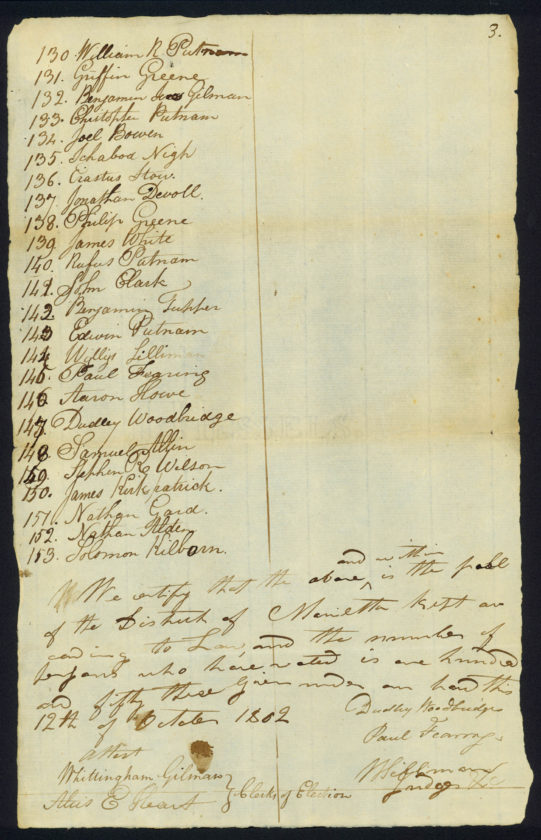 3.
130 William R Putnam
131. Griffin Greene
132. Benjamin Ives Gilman
133. Christopher Putnam
134. Joel Bowen
135. Ichabod Nigh
136. Erastus Stow.
137. Jonathan Devoll.
138. Philip Greene
139. James White
140. Rufus Putnam
141. John Clark
142. Benjamin Tupper
143 Edwin Putnam
144 Wyllys Silliman
145. Paul Fearing
146 Aaron Howe
147 Dudley Woodbridge
148 Samuel Allin
149. Stephen R Wilson
150. James Kirkpatrick.
151. Nathan Gard.
152. Nathan Alden
153. Solomon Kilborn.
and within
We certify that the above, is the poll
of the District of Marietta kept ac
cording to Law, and the number of
persons who have voted is one hundred
and fifty three Given under our hand this
12th of October 1802
Dudley Woodbridge
Paul Fearing
attest
Whittingham Gilman
Judges
Clerks of Election